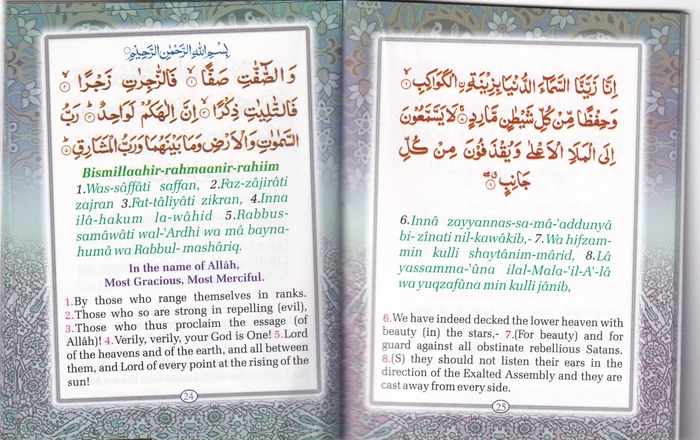 بِسْمِ اللهِ الرَّحْمٰنِ الرَّحِيْمِ
وَالصّٰٓفّٰتِ صَفًّا ۙ فَالزّٰجِرٰتِ زَجْرًا ۙ
فَالتّٰلِيٰتِ ذِكْرًا ۙ اِنَّ اِلٰهَكُمْ لَوَاحِدٌ ؕ رَبُّ
السَّمٰوٰتِ وَالْاَرْضِ وَمَا بَيْنَهُمَا وَرَبُّ الْمَشَارِقِ ؕ
Bismillaahir-rahmaanir-rahiim
1.Was-sâffâti saffan, 2.Faz-zâjirâti
zajran 3.Fat-tâliyâti zikran, 4.Inna
ilâ-hakum la-wâhid 5.Rabbus-
samâwâti wal-'Ardhi wa mâ bayna-
humâ wa Rabbul- mashâriq.
In the name of Allâh,
Most Gracious, Most Merciful.
1.By those who range themselves in ranks.
2.Those who so are strong in repelling (evil),
3.Those who thus proclaim the essage (of
Allâh)! 4.Verily, verily, your God is One! 5.Lord
of the heavens and of the earth, and all between
them, and Lord of every point at the rising of the
sun!
24
اِنَّا زَيَّنَّا السَّمَآءَ الدُّنْيَا بِزِيْنَةِ ۨ الْكَوَاكِبِ ۙ
وَحِفْظًا مِّنْ كُلِّ شَيْطٰنٍ مَّارِدٍ ۚ لَا يَسَّمَّعُوْنَ
اِلَى الْمَلَاِ الْاَعْلٰى وَيُقْذَفُوْنَ مِنْ كُلِّ
جَانِبٍ ۖ
6.Innâ zayyannas-sa-mâ-'addunyâ
bi- zînati nil-kawâkib,- 7.Wa hifzam-
min kulli shaytânim-mârid, 8.Lâ
yassamma-'ûna ilal-Mala-'il-A'-lâ
wa yuqzafûna min kulli jânib,
6.We have indeed decked the lower heaven with
beauty (in) the stars,- 7.(For beauty) and for
guard against all obstinate rebellious Satans.
8.(S) they should not listen their ears in the
direction of the Exalted Assembly and they are
cast away from every side.
25